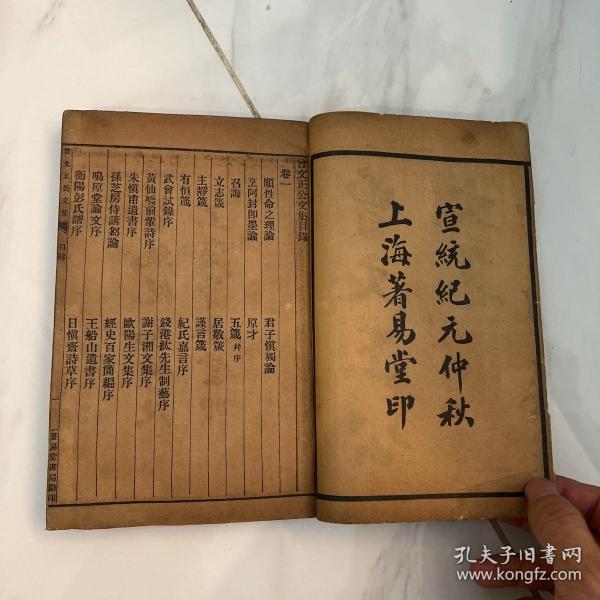 宣統紀元仲秋
上海著易堂印
曾文正公文集目錄
卷一
順性命之理論
君子慎獨論
烹阿封即墨論
原才
召誨
五箴 幷序
立志箴
居敬箴
主靜箴
謹言箴
有恒箴
紀氏嘉言序
武會試錄序
錢港舫先生制藝序
黃仙嶠前輩詩序
謝子湘文集序
朱慎甫遺書序
歐陽生文集序
孫芝房侍講芻論
經史百家簡編序
鳴原堂論文序
王船山遺書序
衡陽彭氏譜序
日慎齋詩草序
曾文正公文集 目錄
一
著易堂書局鉛印
孔夫子旧书网
www.kongfz.com